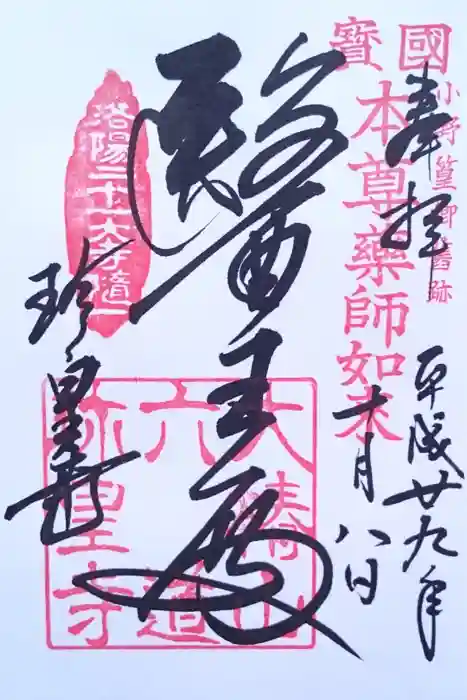 國寶
小野篁卿舊跡
奉拝
平成廿九年
十月八日
本尊藥師如来
醫王殿
洛陽二十一大寺隨一
珍皇寺
大椿山
六道
珎皇寺